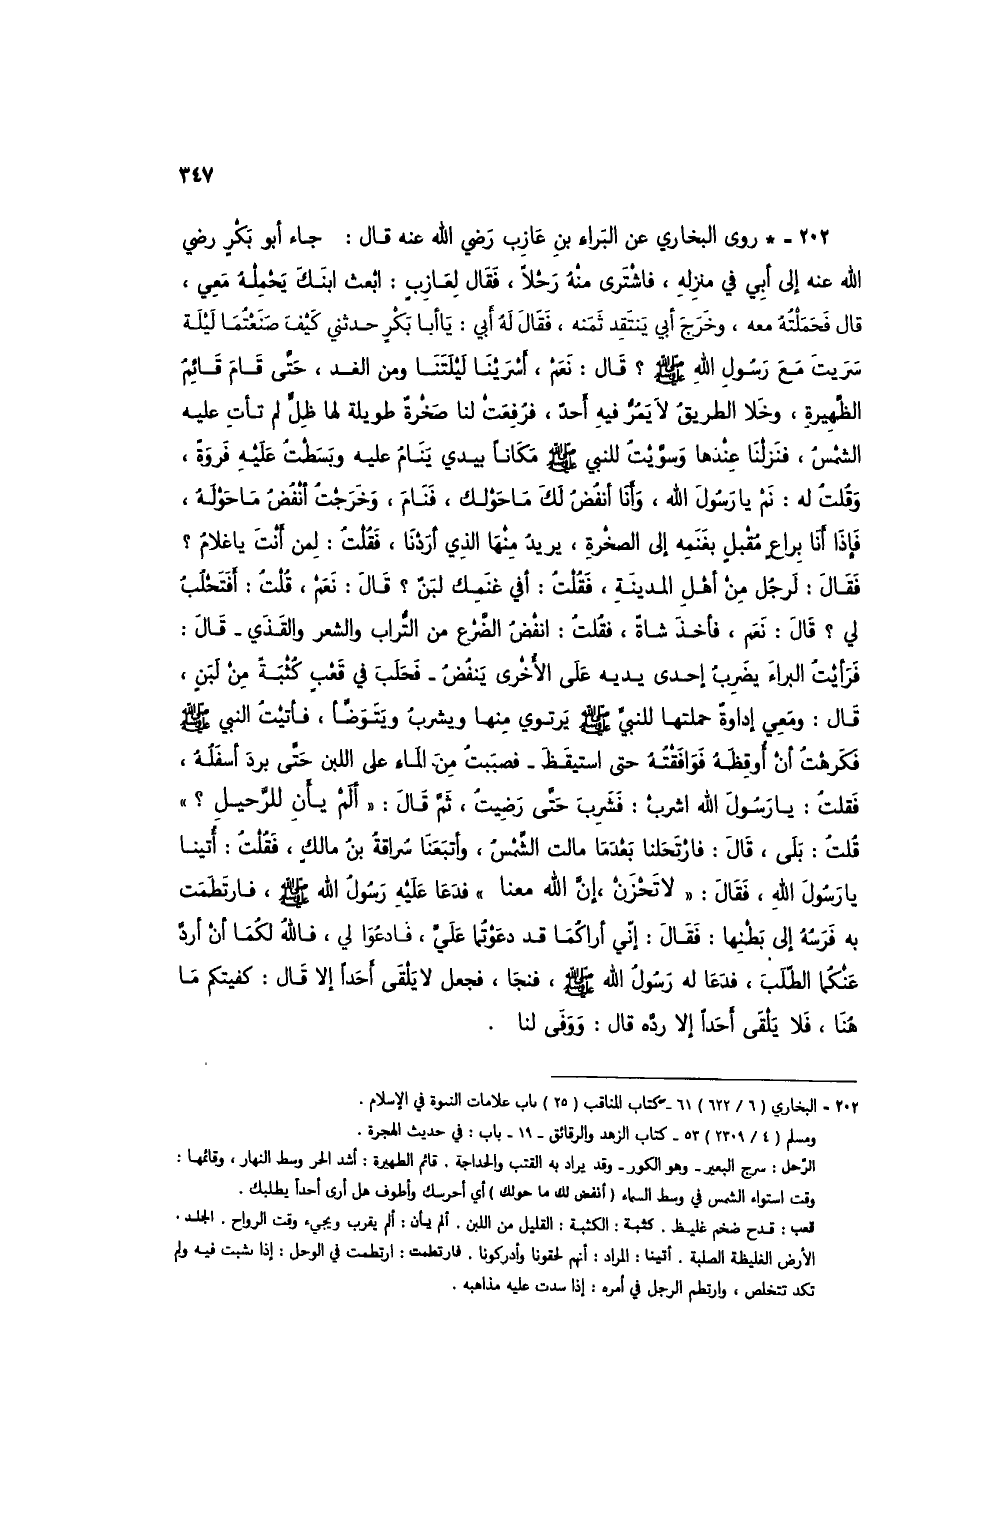 ٣٤٧
٢٠٢ - * روى البخاري عن البَراء بنِ عَازِب رَضي الله عنه قال : جاء أبو بَكْرٍ رضي
الله عنه إلى أَبِي في منزلِهِ ، فاشْتَرى منْهُ رَحْلاً ، فَقَال لِعَازِبٍ : ابْعث ابنَكَ يَحْمِلْهُ مَعِي ،
قال فَحَمَلْتُهُ معه ، وخَرَجَ أبي يَنتَقِد ثَمَنه ، فَقَالَ لَهُ أَبي : يَاأبا بَكْرٍ حدثني كَيْفَ صَنَعْتُمَا لَيْلَة
سَرَيتَ مَعَ رَسُولِ اللهِ ﷺ ؟ قَال : نَعَمْ ، أَسْرَيْنَا لَيْلَتَنَا ومن الغد ، حَتَّى قَامَ قَائِمُ
الظَّهِيرةِ ، وخَلا الطريقُ لاَيَمُرُّ فيهِ أحدٌ ، فرُفِعَتْ لنا صَخْرةٌ طويلة لها ظِلٌّ لم تأتِ عليه
الشمْسُ ، فنَزلْنَا عِنْدها وَسوَّيْتُ للنبي ﷺ مَكَاناً بيدي يَنَامُ عليه وبَسَطْتُ عَلَيْهِ فَروَةً ،
وَقُلتُ له : نَمْ يارَسُولَ الله ، وَأَنَا أنفُضُ لَكَ مَاحَوْلك ، فَنَامَ ، وَخَرَجْتُ أنْفُضُ مَاحَوْلَهُ ،
فَإذَا أَنَا بِراعٍ مُقْبلٍ بغَنَمِه إلى الصخْرةِ ، يريدُ مِنْهَا الذي أرَدْنَا ، فَقُلْتُ : لِمن أَنْتَ ياغلامُ ؟
فَقَالَ : لَرجُلٍ مِنْ أهْلِ المدينَةِ ، فَقُلْتُ : أفي غنَمِك لبَنٌ ؟ قَالَ : نَعَمْ ، قُلْتُ : أَفَتَحْلُبُ
لي ؟ قَالَ : نَعَم ، فأخذَ شاةً ، فقُلتُ : انفُضْ الضَّرْع من التُّراب والشعر والقَذَي - قَالَ :
فَرَأيْتُ البراءَ يضَرِبُ إحدى يديه عَلَى الأُخْرى يَنفُضُ - فَحَلَبَ في قَعْبٍ كُثْبَةً مِنْ لَبَنٍ ،
قَال : ومَعِي إداوةٌ حملتها للنبيِّ ﷺ يَرتوي مِنها ويشربُ ويَتَوَضَّأ ، فأتيْتُ النبي ﷺ
فَكَرهْتُ أنْ أُوقظَهُ فَوَافَقْتُهُ حتى استيقَظَ - فصبَبتُ مِنَ الماء على اللبن حَتَّى بردَ أسفَلُهُ ،
فَقلتُ : يارَسُولَ الله اشربْ : فَشَرِبَ حَتَّى رَضِيتُ ، ثمَّ قَالَ : « ألَمْ يأنِ للرَّحيلِ ؟ »
قُلتُ : بَلَى ، قَالَ : فارْتَحَلنا بَعْدَمَا مالت الشَّمْسُ ، وأتبَعَنَا سُراقَةُ بنُ مالكٍ ، فَقُلْتُ : أُتينا
يارَسُولَ اللهِ ، فَقَالَ : « لاتَحْزَنْ ،إنَّ الله معنا » فدَعَا عَلَيْهِ رَسُولُ الله ﷺ ، فارتَطَمَت
به فَرَسُهُ إلى بَطْنِها : فَقَالَ : إنّي أراكُمَا قد دعَوْتُما عَلَيَّ ، فَادعُوَا لي ، فاللهُ لكُمَا أنْ أردَّ
عَنْكُما الطَّلَبَ ، فدَعَا له رَسُولُ الله ﷺ ، فنجَا ، فجعل لايَلْقَى أحَداً إلا قَال : كفيتكم مَا
هُنَا ، فَلا يَلْقَى أَحَداً إلا ردَّه قال : وَوَفَى لنا .
٢٠٢ - البخاري ( ٦ / ٦٢٢ ) ٦١ - كتاب المناقب ( ٢٥ ) باب علامات النبوة في الإسلام .
ومسلم ( ٤ / ٢٣٠٩ ) ٥٣ - كتاب الزهد والرقائق - ١٩ - باب : في حديث الهجرة .
الرَّحل : سرج البعير - وهو الكور - وقد يراد به القتب والحداجة . قائم الظهيرة : أشد الحر وسط النهار ، وقائمها :
وقت استواء الشمس في وسط السماء ( أنفض لك ما حولك ) أي أحرسك وأطوف هل أرى أحداً يطلبك .
قعب : قدح ضخم غليظ . كثبة : الكثبة : القليل من اللبن . ألم يأن : ألم يقرب ويجيء وقت الرواح . الجلد .
الأرض الغليظة الصلبة . أتينا : المراد : أنهم لحقونا وأدركونا . فارتطمت : ارتطمت في الوحل : إذا نشبت فيه ولم
تكد تتخلص ، وارتطم الرجل في أمره : إذا سدت عليه مذاهبه .